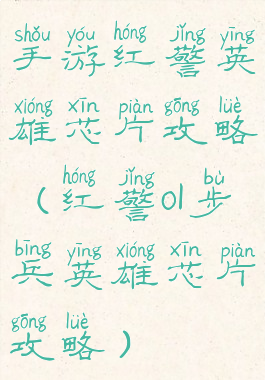 shǒu yóu hóng jǐng yīng
手游红警英
xióng xīn piàn gōng lüè
雄芯片攻略
hóng jǐng bù
(红警01步
bīng yīng xióng xīn piàn
兵英雄芯片
gōng lüè
攻略)